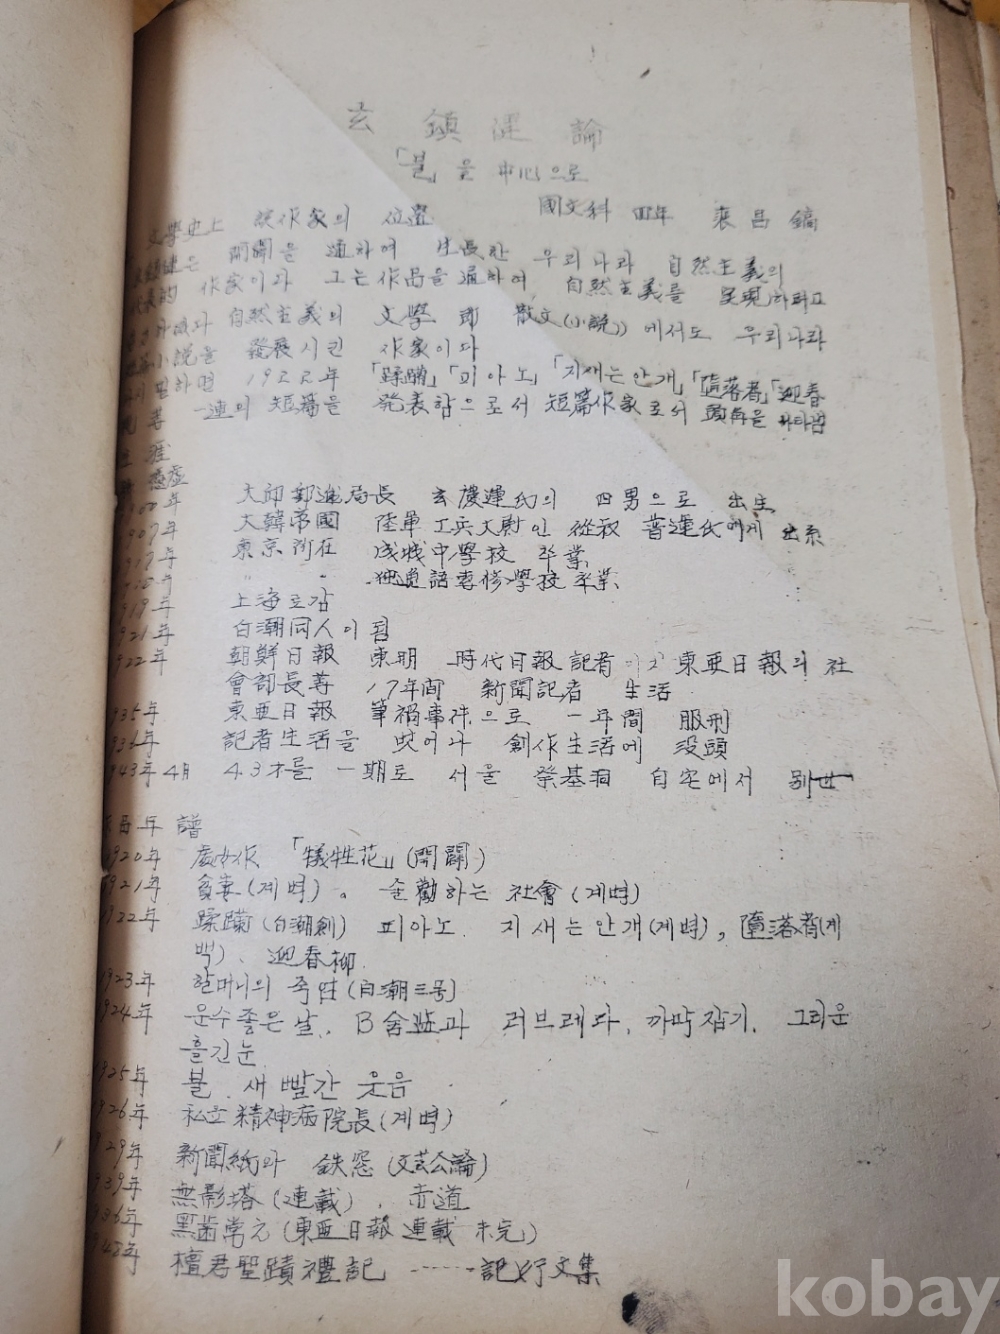 玄鎭健論
「불」을 中心으로
國文科 四年 裵昌鎬
文學史上 該作家의 位置
開闢을 通하여 生長한 우리나라 自然主義의
作家이라 그는 作品을 通하여, 自然主義를 呈現하려고
自然主義의 文學 卽 散文(小說)에서도 우리나라
小說을 發展시킨 作家이다
하면 1922年 「蹂躪」「피아노」「지새는안개」「墮落者」「迎春
一連의 短篇을 発表함으로서 短篇作家로서 頭角을 나타냄
生涯
憑虛
1900年 大邱郵遞局長 玄慶運氏의 四男으로 出生
1907年 大韓帝國 陸軍工兵大尉인 從叔 普運氏에게 出系
1917年 東京所在 成城中學校 卒業
1918年 〃 〃 独逸語専修學校 卒業
1919年 上海로감
1921年 白潮同人이 됨
1922年 朝鮮日報 東明 時代日報 記者 東亜日報의 社
會部長等 17年間 新聞記者 生活
1935年 東亜日報 筆禍事件으로 一年間 服刑
1936年 記者生活을 벗어나 創作生活에 没頭
1943年 4月 43才를 一期로 서울 祭基洞 自宅에서 別世
作品年譜
1920年 處女作 「犠牲花」(開闢)
1921年 貧妻(계벽)。 술勸하는 社會(계벽)
1922年 蹂躪(白潮創) 피아노. 지새는안개(계벽), 墮落者(계
벽)、迎春柳.
1923年 할머니의 죽엄(白潮三号)
1924年 운수좋은날, B舍監과 러브레타, 까막잡기. 그리운
흘긴눈
1925年 불. 새빨간 웃음
1926年 私立精神病院長(계벽)
1929年 新聞紙와 鉄窓(文芸公論)
1939年 無影塔(連載), 赤道
1936年 黑歯常之(東亜日報 連載 未完)
檀君聖蹟禮記 ------紀行文集
kobay